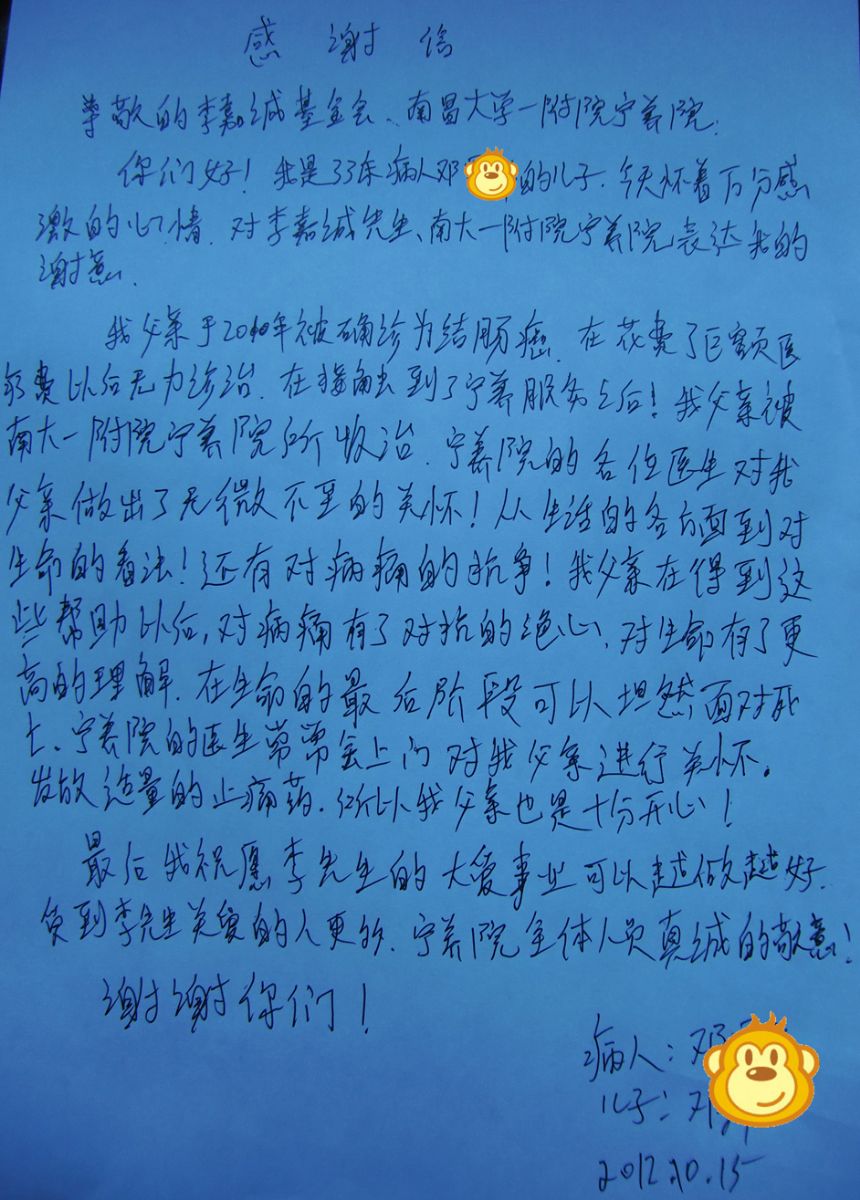 感谢信
尊敬的李嘉诚基金会、南昌大学一附院宁养院:
你们好!我是33床病人邓 的儿子.今天怀着万分感
激的心情.对李嘉诚先生、南大一附院宁养院表达我的
谢意.
我父亲于2010年被确诊为结肠癌.在花费了巨额医
药费以后无力诊治.在接触到了宁养服务之后!我父亲被
南大一附院宁养院所收治.宁养院的各位医生对我
父亲做出了无微不至的关怀!从生活的各方面到对
生命的看法!还有对病痛的抗争!我父亲在得到这
些帮助以后,对病痛有了对抗的绝心、对生命有了更
高的理解.在生命的最后阶段可以坦然面对死
亡、宁养院的医生常常会上门对我父亲进行关怀。
发放适量的止痛药.所以我父亲也是十分开心!
最后我祝愿李先生的大爱事业可以越做越好.
负到李先生关爱的人更多.宁养院全体人员真诚的敬意!
谢谢你们!
病人:邓
儿子:邓
2012.10.15